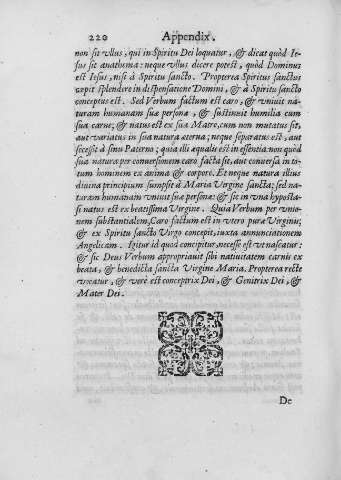 220 Appendix.
non sit vllus, qui in Spiritu Dei loquatur, & dicat quòd Ie-
sus sit anathema: neque vllus dicere potest, quòd Dominus
est Iesus, nisi à Spiritu sancto. Propterea Spiritus sanctus
cœpit splendere in dispensatione Domini, & à Spiritu sancto
conceptus est. Sed Verbum factum est caro, & vniuit na-
turam humanam suæ personæ, & sustinuit humilia cum
sua carne; & natus est ex sua Matre, cum non mutatus sit,
aut variatus in sua natura æterna; neque separatus est, aut
secessit à sinu Paterno; quia illi æqualis est in essentia non quòd
sua natura per conuersionem caro facta sit, aut conuersa in to-
tum hominem ex anima & corpore. Et neque natura illius
diuina principium sumpsit à Maria Virgine sancta: sed na-
turam humanam vniuit suæ personæ: & sic in vna hyposta-
si natus est ex beatissima Virgine. Quia Verbum per vnio-
nem substantialem, Caro factum est in vtero puræ Virginis;
& ex Spiritu sancto Virgo concepit, iuxta annunciationem
Angelicam. Igitur id quod concipitur, necesse est vt nascatur:
& sic Deus Verbum appropriauit sibi natiuitatem carnis ex
beata, & benedicta sancta Virgine Maria. Propterea recte
vocatur, & verè est conceptrix Dei, & Genitrix Dei, &
Mater Dei.
De